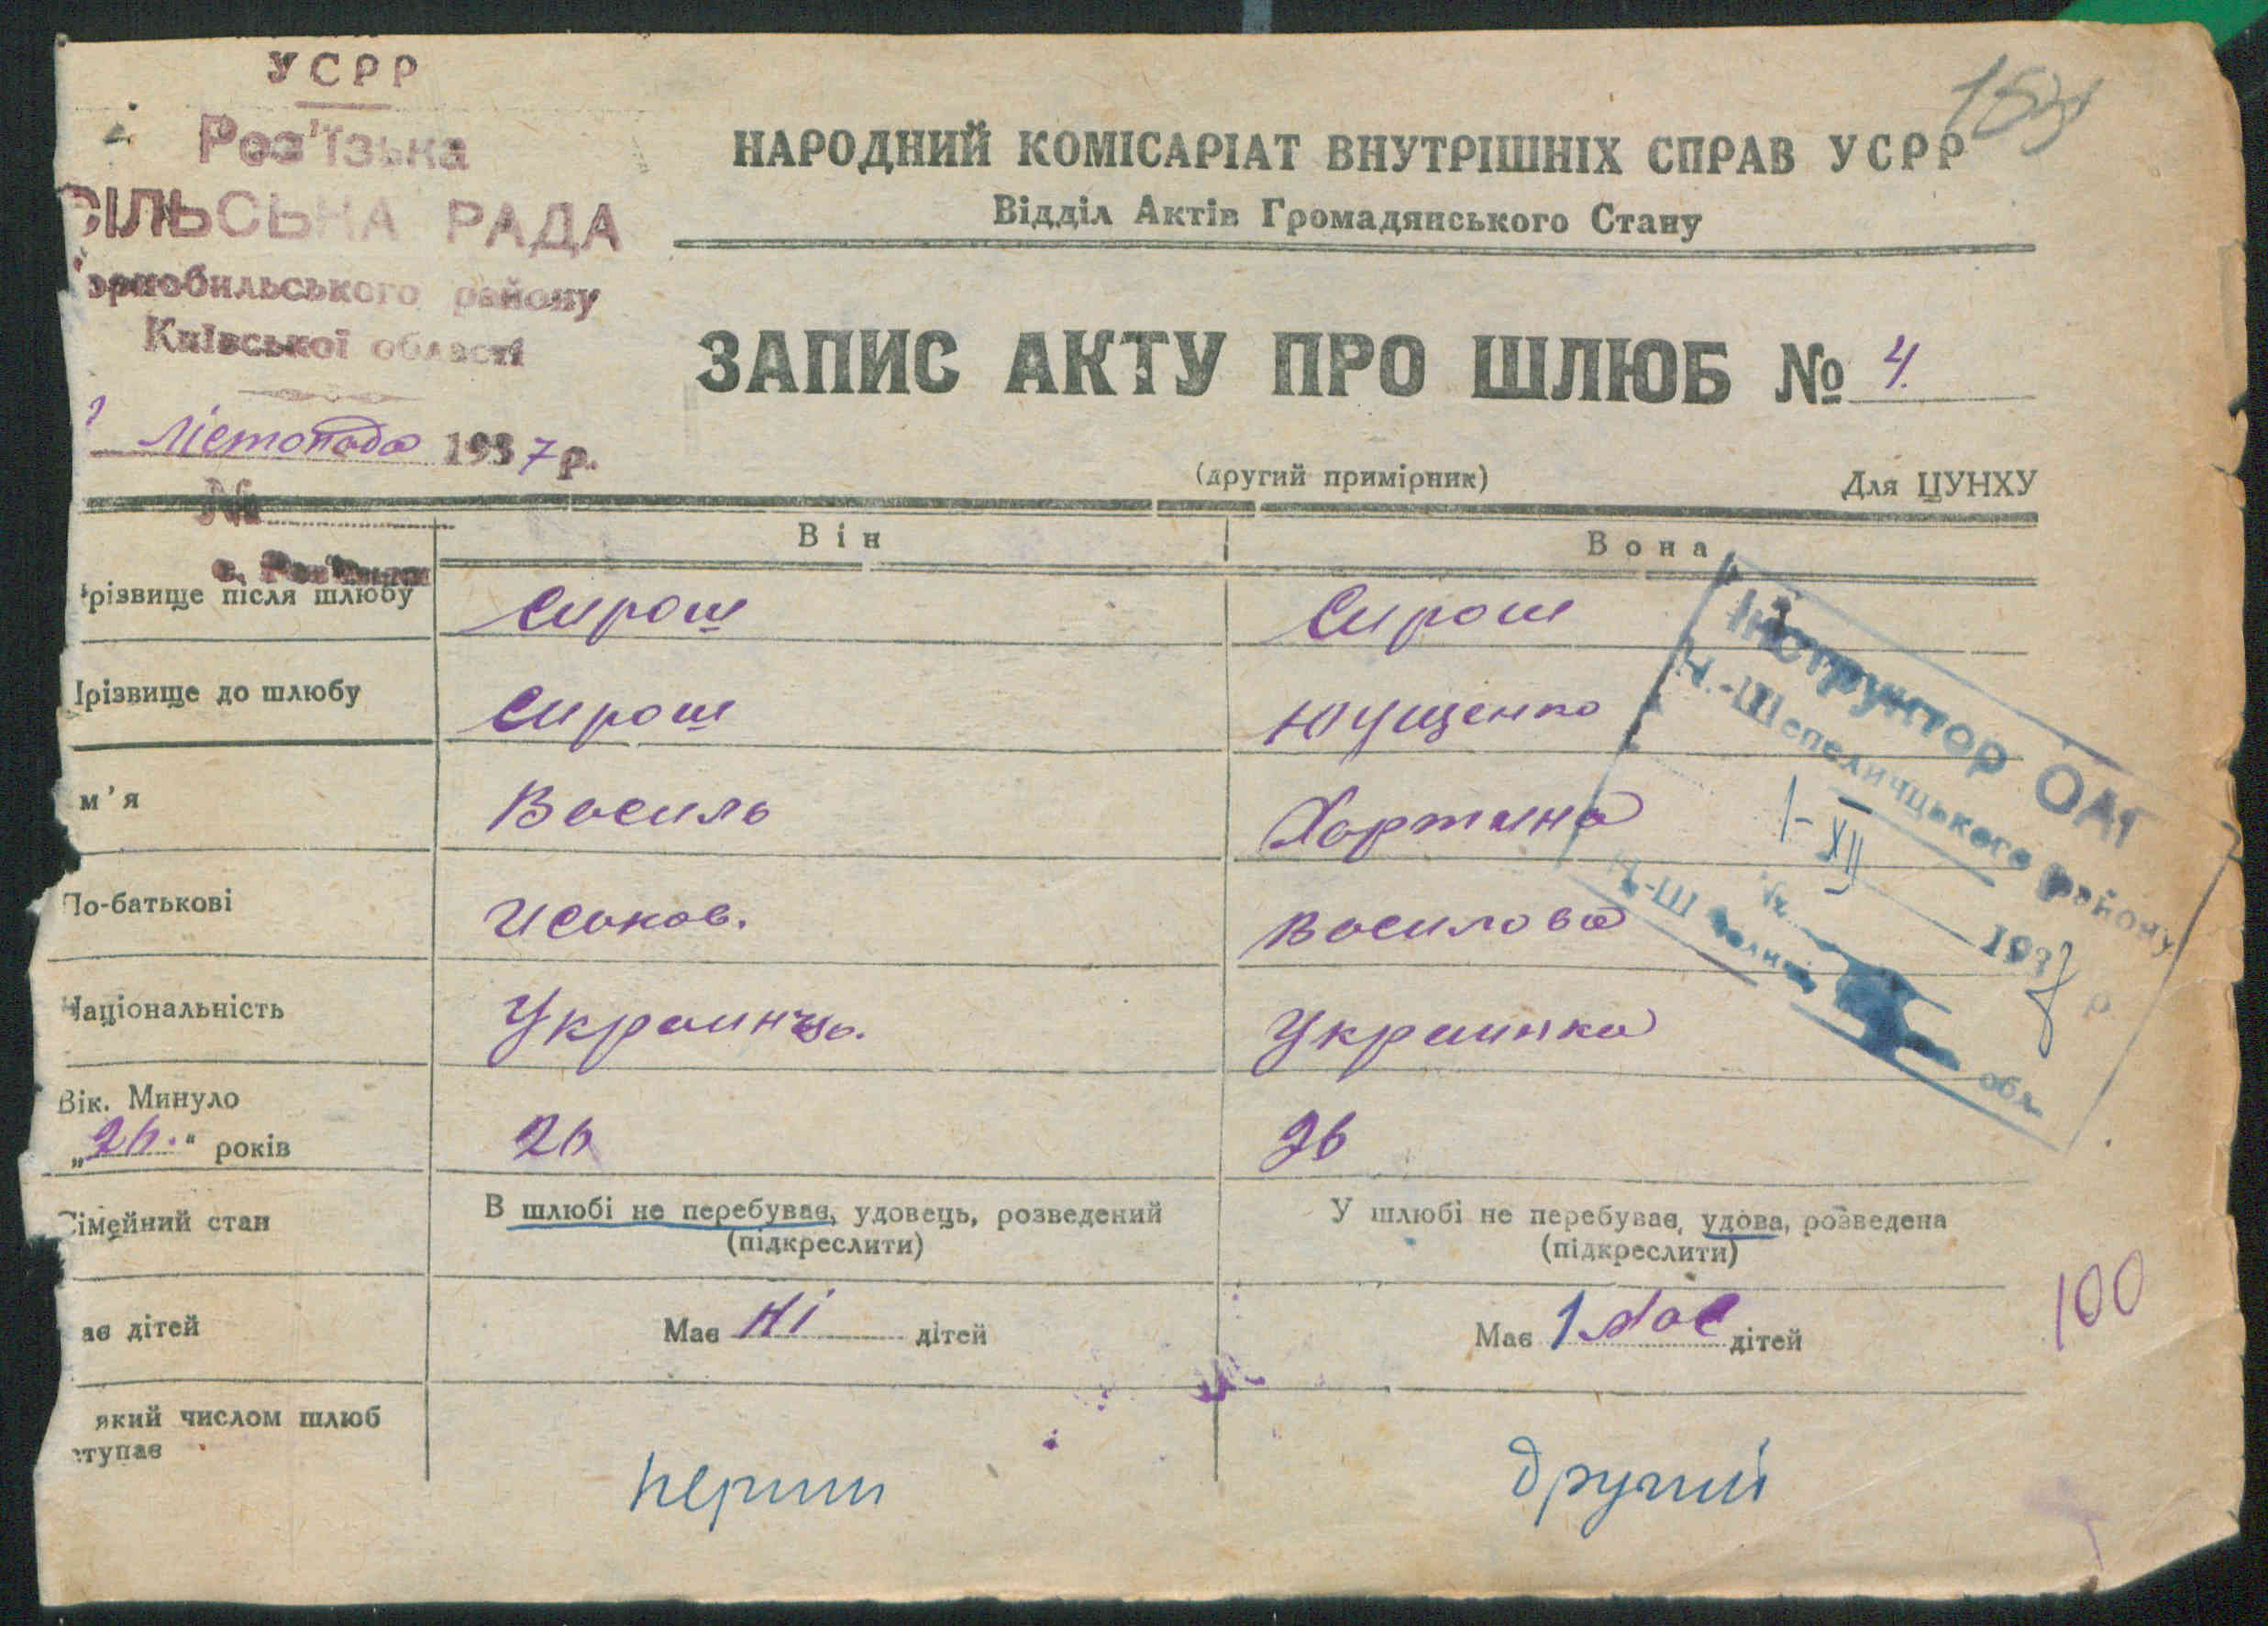 УСРР
Роз'їзька
СІЛЬСЬКА РАДА
орнобильського району
Київської області
Лістопада 1937 р.
№
НАРОДНИЙ КОМІСАРІАТ ВНУТРІШНІХ СПРАВ УСРР
Відділ Актів Громадянського Стану
ЗАПИС АКТУ ПРО ШЛЮБ № 4.
(другий примірник) Для ЦУНХУ
Він Вона
різвище після шлюбу Сирош Сирош
різвище до шлюбу Сирош Ющенко
м'я Василь Хортина
По-батькові Исаков. Василова
Національність Украинць. Украинка
Вік. Минуло
„26." років 26 26
Сімейний стан В шлюбі не перебуває, удовець, розведений У шлюбі не перебуває, удова, розведена
(підкреслити) (підкреслити)
ає дітей Має Ні дітей Має 1 має дітей
який числом шлюб
ступає перши другий
Інструктор ОАГ
Н.-Шепеличцького району
1-XII 1937 р.
обл.
100